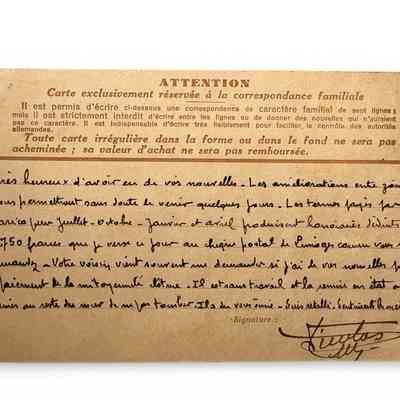 ATTENTION
Carte exclusivement réservée à la correspondance familiale
Il est permis d'écrire ci-dessous une correspondance de caractère familial de sept lignes ;
mais il est strictement interdit d'écrire entre les lignes ou de donner des nouvelles qui n'auraient
pas ce caractère. Il est indispensable d'écrire très lisiblement pour faciliter le contrôle des autorités
allemandes.
Toute carte irrégulière dans la forme ou dans le fond ne sera pas
acheminée ; sa valeur d'achat ne sera pas remboursée.
heureux d'avoir eu de vos nouvelles - Les améliorations entre
permettront sans doute de venir quelques jours - Les termes payés par
pour Juillet - Octobre - Janvier et avril produisent honoraires déduits
750 francs que je verse ce jour au chèque postal de Limoges comme vous
demandez - Votre voisin vient souvent me demander si j'ai de vos nouvelles
paiement de la mitoyenneté clôture - Il est sans travail et la remise en état
du reste du mur de tomber - Il a du
Signature :
Nicolas